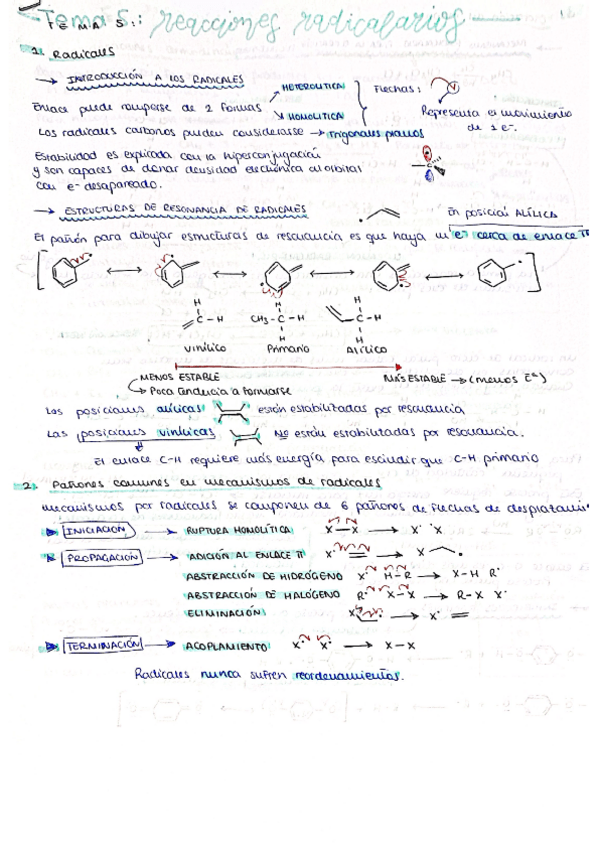 Tema 5: reacciones radicalarias
TEMA 5:
1. Radicales
→ INTRODUCCIÓN A LOS RADICALES
HETEROLÍTICA
Flechas:
Enlace puede romperse de 2 formas
HOMOLÍTICA
Representa el movimiento
de 1 e-.
Los radicales carbonos pueden considerarse → trigonales planos
Estabilidad es explicada con la hiperconjugación
y son capaces de donar densidad electrónica al orbital
con e- desapareado.
→ ESTRUCTURAS DE RESONANCIA DE RADICALES
En posición ALÍLICA
El patrón para dibujar estructuras de resonancia es que haya un e- cerca de enlace π
H H H
C-H CH3-C-H C-H
H H
Vinílico Primario Alílico
MENOS ESTABLE MÁS ESTABLE → (menos Eª)
↳ Poca tendencia a formarse
Las posiciones alílicas están estabilizadas por resonancia
Las posiciones vinílicas NO están estabilizadas por resonancia.
El enlace C-H requiere más energía para escindir que C-H primario
2. Patrones comunes en mecanismos de radicales
Mecanismos por radicales se componen de 6 patrones de flechas de desplazami
INICIACIÓN → RUPTURA HOMOLÍTICA: X-X → X· ·X
PROPAGACIÓN → ADICIÓN AL ENLACE π X· → X
ABSTRACCIÓN DE HIDRÓGENO X· H-R → X-H R·
ABSTRACCIÓN DE HALÓGENO R· X-X → R-X X·
ELIMINACIÓN X → X·
TERMINACIÓN → ACOPLAMIENTO X· X· → X-X
Radicales nunca sufren reordenamientos.